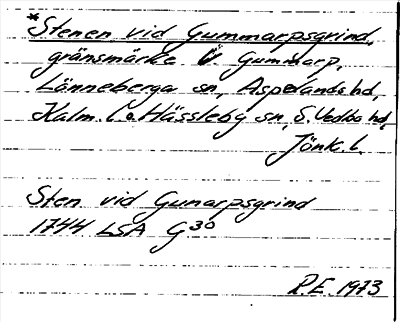 *Stenen vid Gummarpsgrind,
gränsmärke Gummarp,
Lönneberga sn, Aspelands hd,
Kalm. l. o. Hässleby sn, S. Vedbo hd,
Jönk. l.
Sten vid Gunarpsgrind
1744 LSA G30
R.E. 1973